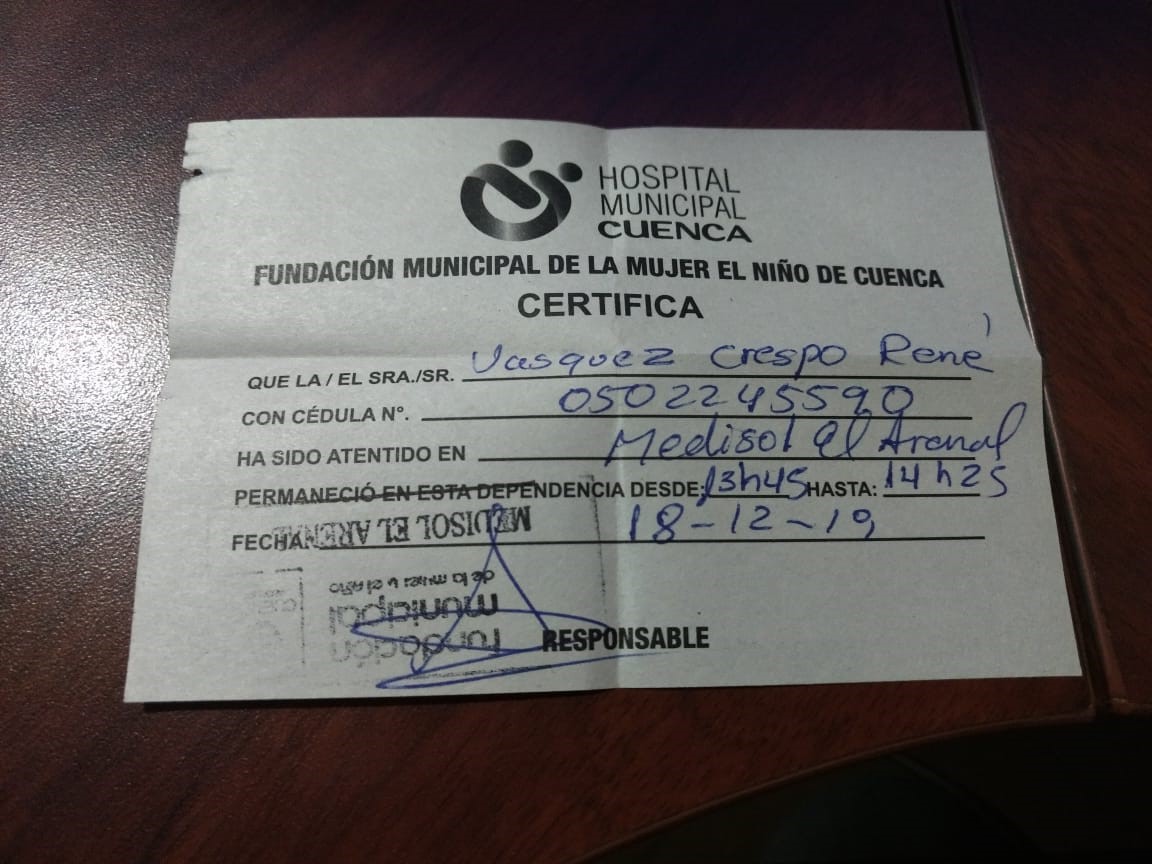 HOSPITAL
MUNICIPAL
CUENCA
FUNDACIÓN MUNICIPAL DE LA MUJER EL NIÑO DE CUENCA
CERTIFICA
QUE LA / EL SRA./SR. Vasquez Crespo René
CON CÉDULA N°. 0502245590
HA SIDO ATENTIDO EN Medisol El Arenal
PERMANECIÓ EN ESTA DEPENDENCIA DESDE: 13h45 HASTA: 14h25
FECHA 18-12-19
MEDISOL EL ARENAL
fundación
municipal
de la mujer y el niño
RESPONSABLE